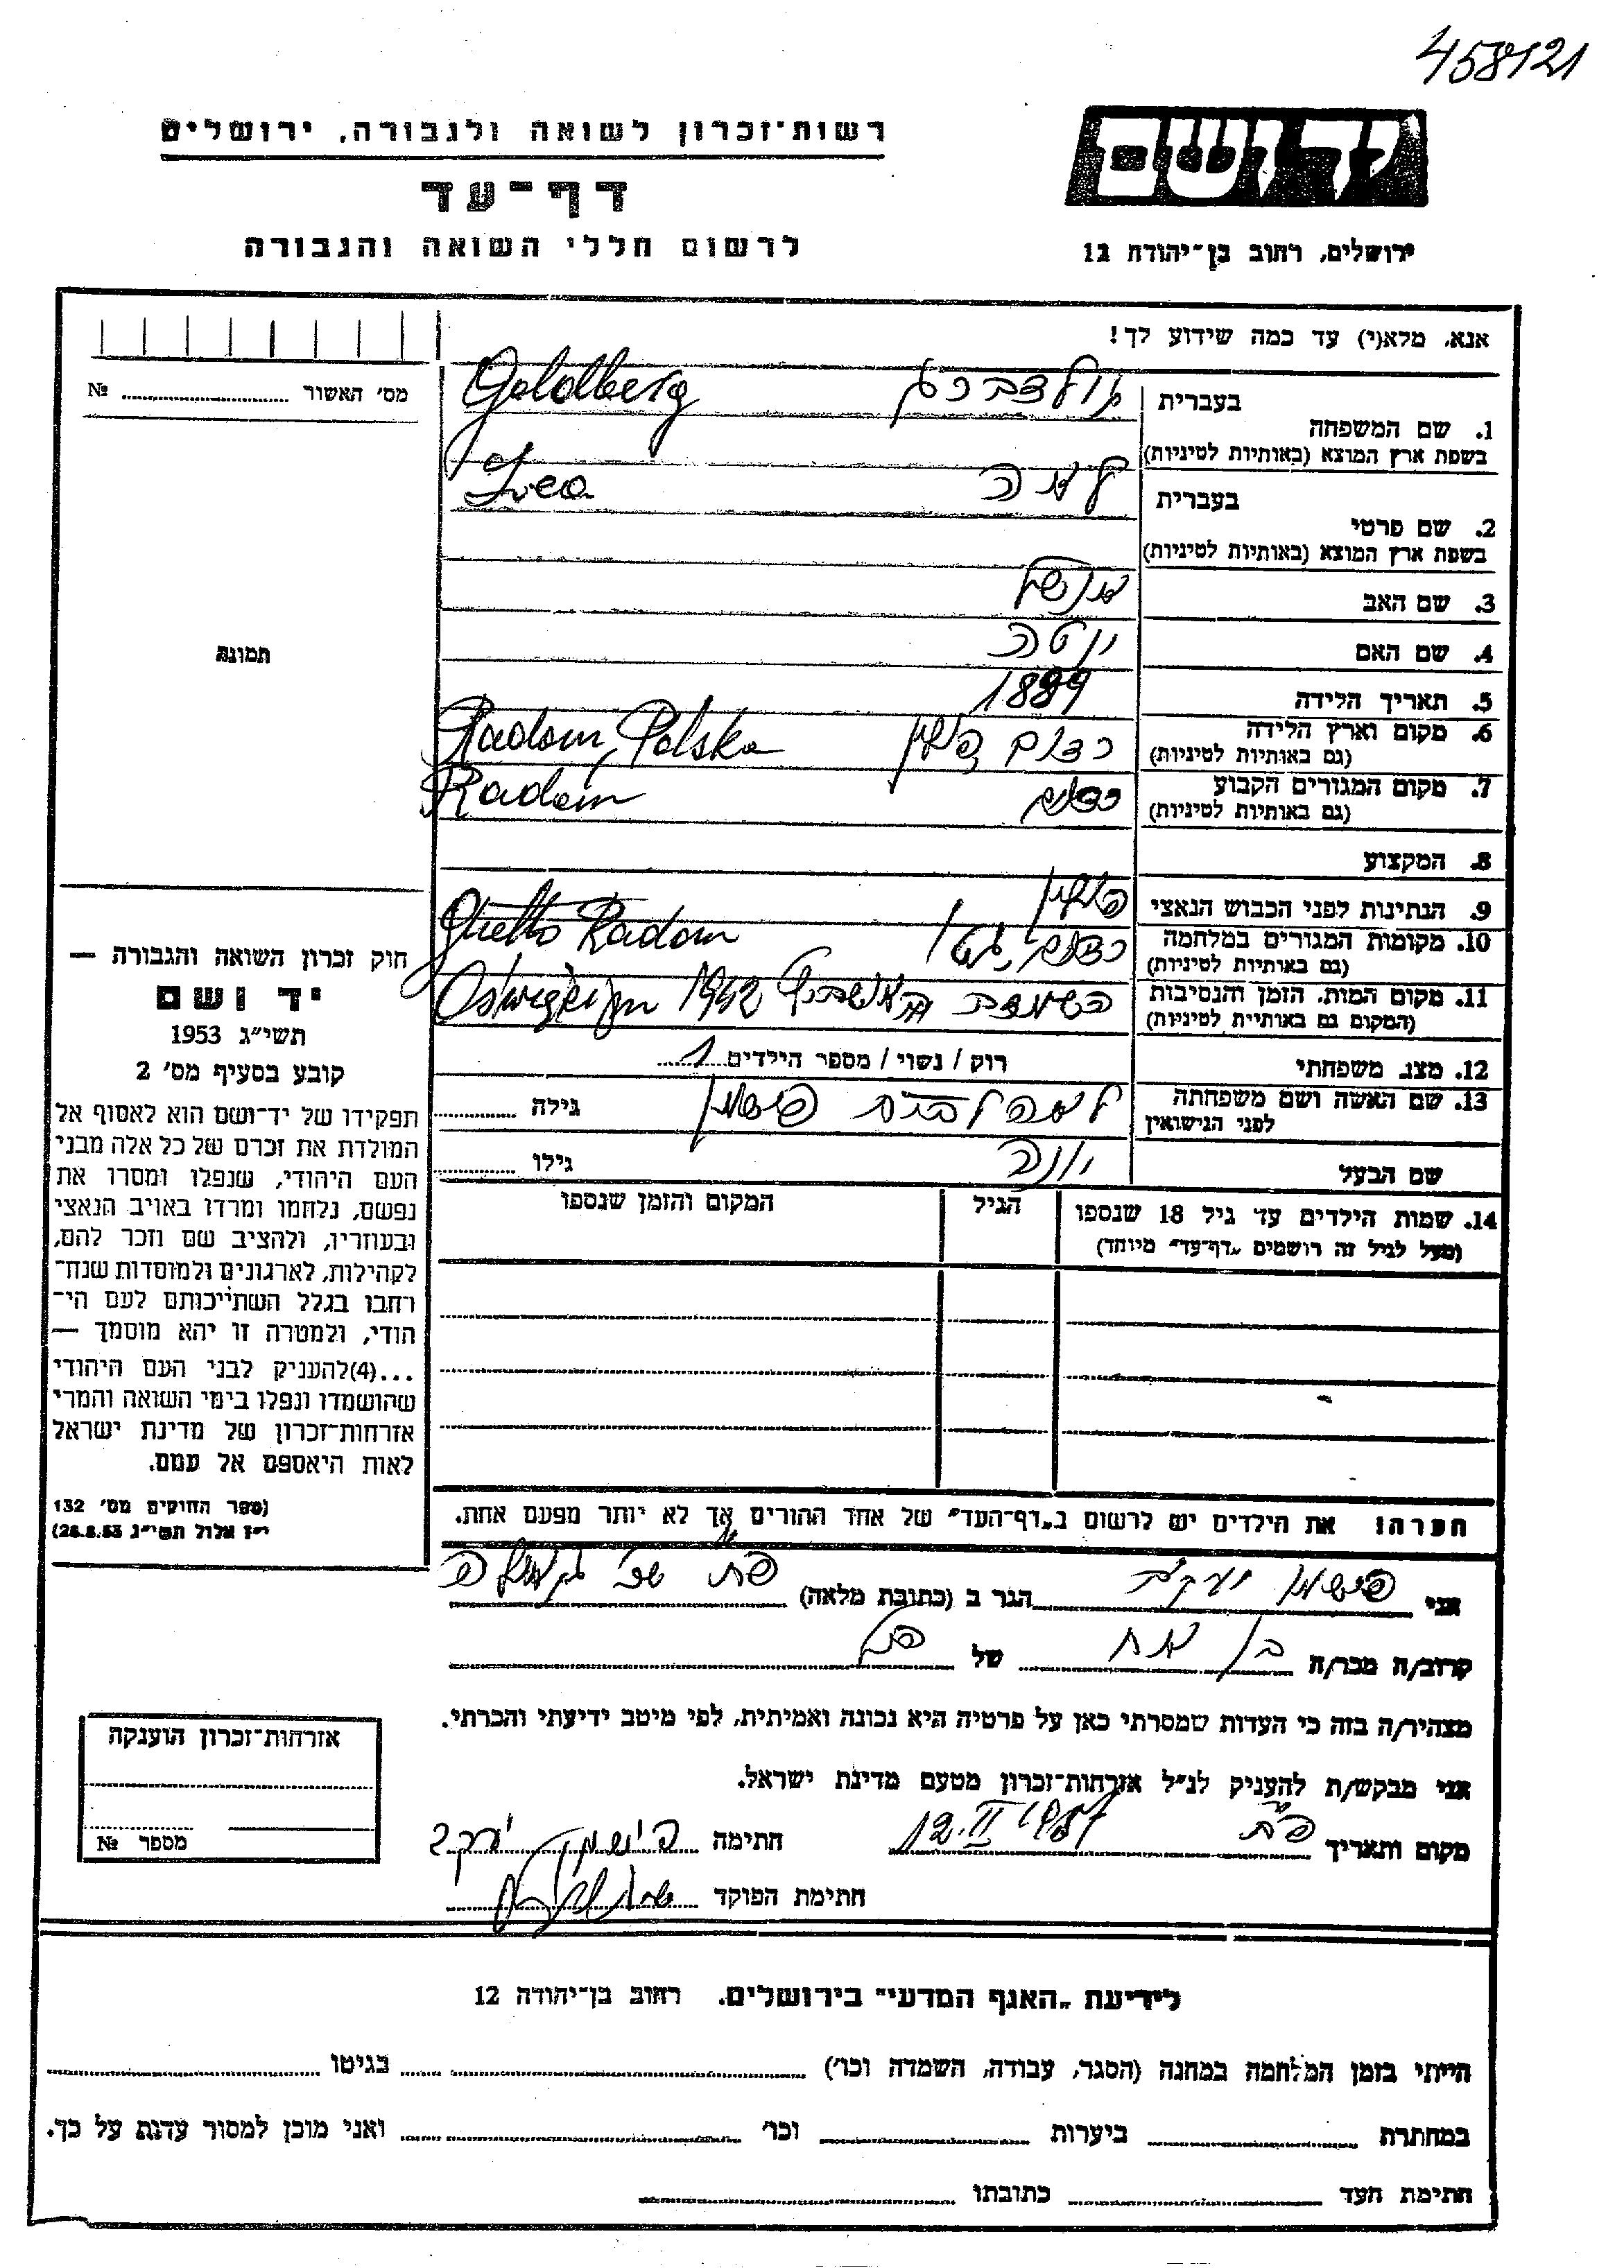 458121
יד ושם
רשות־זכרון לשואה ולגבורה, ירושלים
דף־עד
לרשום חללי השואה והגבורה
ירושלים, רחוב בן־יהודה 12
אנא, מלא(י) עד כמה שידוע לך!
מס' האשור № 
1. שם המשפחה בעברית גולדברג Goldberg
בשפת ארץ המוצא (באותיות לטיניות)
2. שם פרטי בעברית לאה Lea
בשפת ארץ המוצא (באותיות לטיניות)
3. שם האב אנשל
4. שם האם יוטה
5. תאריך הלידה 1899
6. מקום וארץ הלידה רדום, פולין Radom, Polska
(גם באותיות לטיניות)
7. מקום המגורים הקבוע רדום Radom
(גם באותיות לטיניות)
8. המקצוע
9. הנתינות לפני הכבוש הנאצי פולין
10. מקומות המגורים במלחמה רדום, גטו Ghetto Radom
(גם באותיות לטיניות)
11. מקום המות, הזמן והנסיבות הושמדה 1942
(המקום גם באותיות לטיניות)
12. מצב משפחתי רוק / נשוי / מספר הילדים 1
13. שם האשה ושם משפחתה לפני הנישואין לאה לבית פישמן גילה
שם הבעל יונה גילו
14. שמות הילדים עד גיל 18 שנספו הגיל המקום והזמן שנספו
(מעל לגיל זה רושמים „דף־עד" מיוחד)
הערה: את הילדים יש לרשום ב„דף־העד" של אחד ההורים אך לא יותר מפעם אחת.
תמונה
חוק זכרון השואה והגבורה —
יד ושם
תשי"ג 1953
קובע בסעיף מס' 2
תפקידו של יד־ושם הוא לאסוף אל
המולדת את זכרם של כל אלה מבני
העם היהודי, שנפלו ומסרו את
נפשם, נלחמו ומרדו באויב הנאצי
ובעוזריו, ולהציב שם וזכר להם,
לקהילות, לארגונים ולמוסדות שנח־
רחבו בגלל השתייכותם לעם הי־
הודי, ולמטרה זו יהא מוסמך —
...(4)להעניק לבני העם היהודי
שהושמדו ונפלו בימי השואה והמרי
אזרחות־זכרון של מדינת ישראל
לאות היאספם אל עמם.
(ספר החוקים מס' 132
י"ז אלול תשי"ג 28.8.53)
אני פישמן יעקב הגר ב (כתובת מלאה) פ"ת
קרוב/ה מכר/ה בן אח של
מצהיר/ה בזה כי העדות שמסרתי כאן על פרטיה היא נכונה ואמיתית, לפי מיטב ידיעתי והכרתי.
אני מבקש/ת להעניק לנ"ל אזרחות־זכרון מטעם מדינת ישראל.
מקום ותאריך פ"ת 12.II.1957 חתימה פישמן יעקב
חתימת הפוקד
אזרחות־זכרון הוענקה
מספר №
לידיעת „האגף המדעי" בירושלים. רחוב בן־יהודה 12
הייתי בזמן המלחמה במחנה (הסגר, עבודה, השמדה וכו') בגיטו
במחתרת ביערות וכו' ואני מוכן למסור עדות על כך.
חתימת העד כתובתו